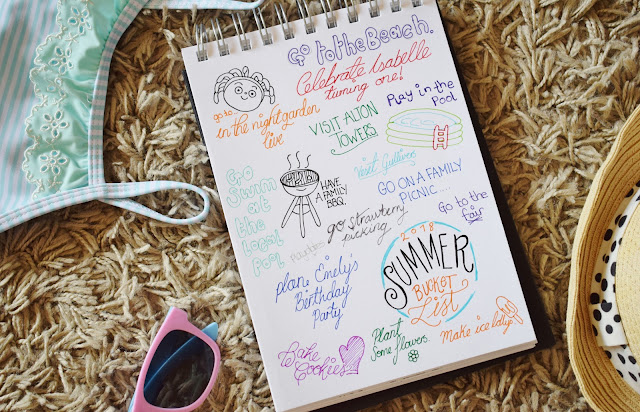 Go to the Beach.
Celebrate Isabelle
turning one!
go to
in the nightgarden
live
VISIT ALTON
TOWERS
Play in the
Pool
Visit Gulliver
HAVE
A FAMILY
BBQ.
GO ON A FAMILY
PICNIC....
Go
Swim
at
the
local
Pool
go strawberry
picking
Go to the
fair
2018
SUMMER
BUCKET
List
Plan Emily's
Birthday
Party
Bake
Cookies
Plant
Some flowers.
Make ice lollys